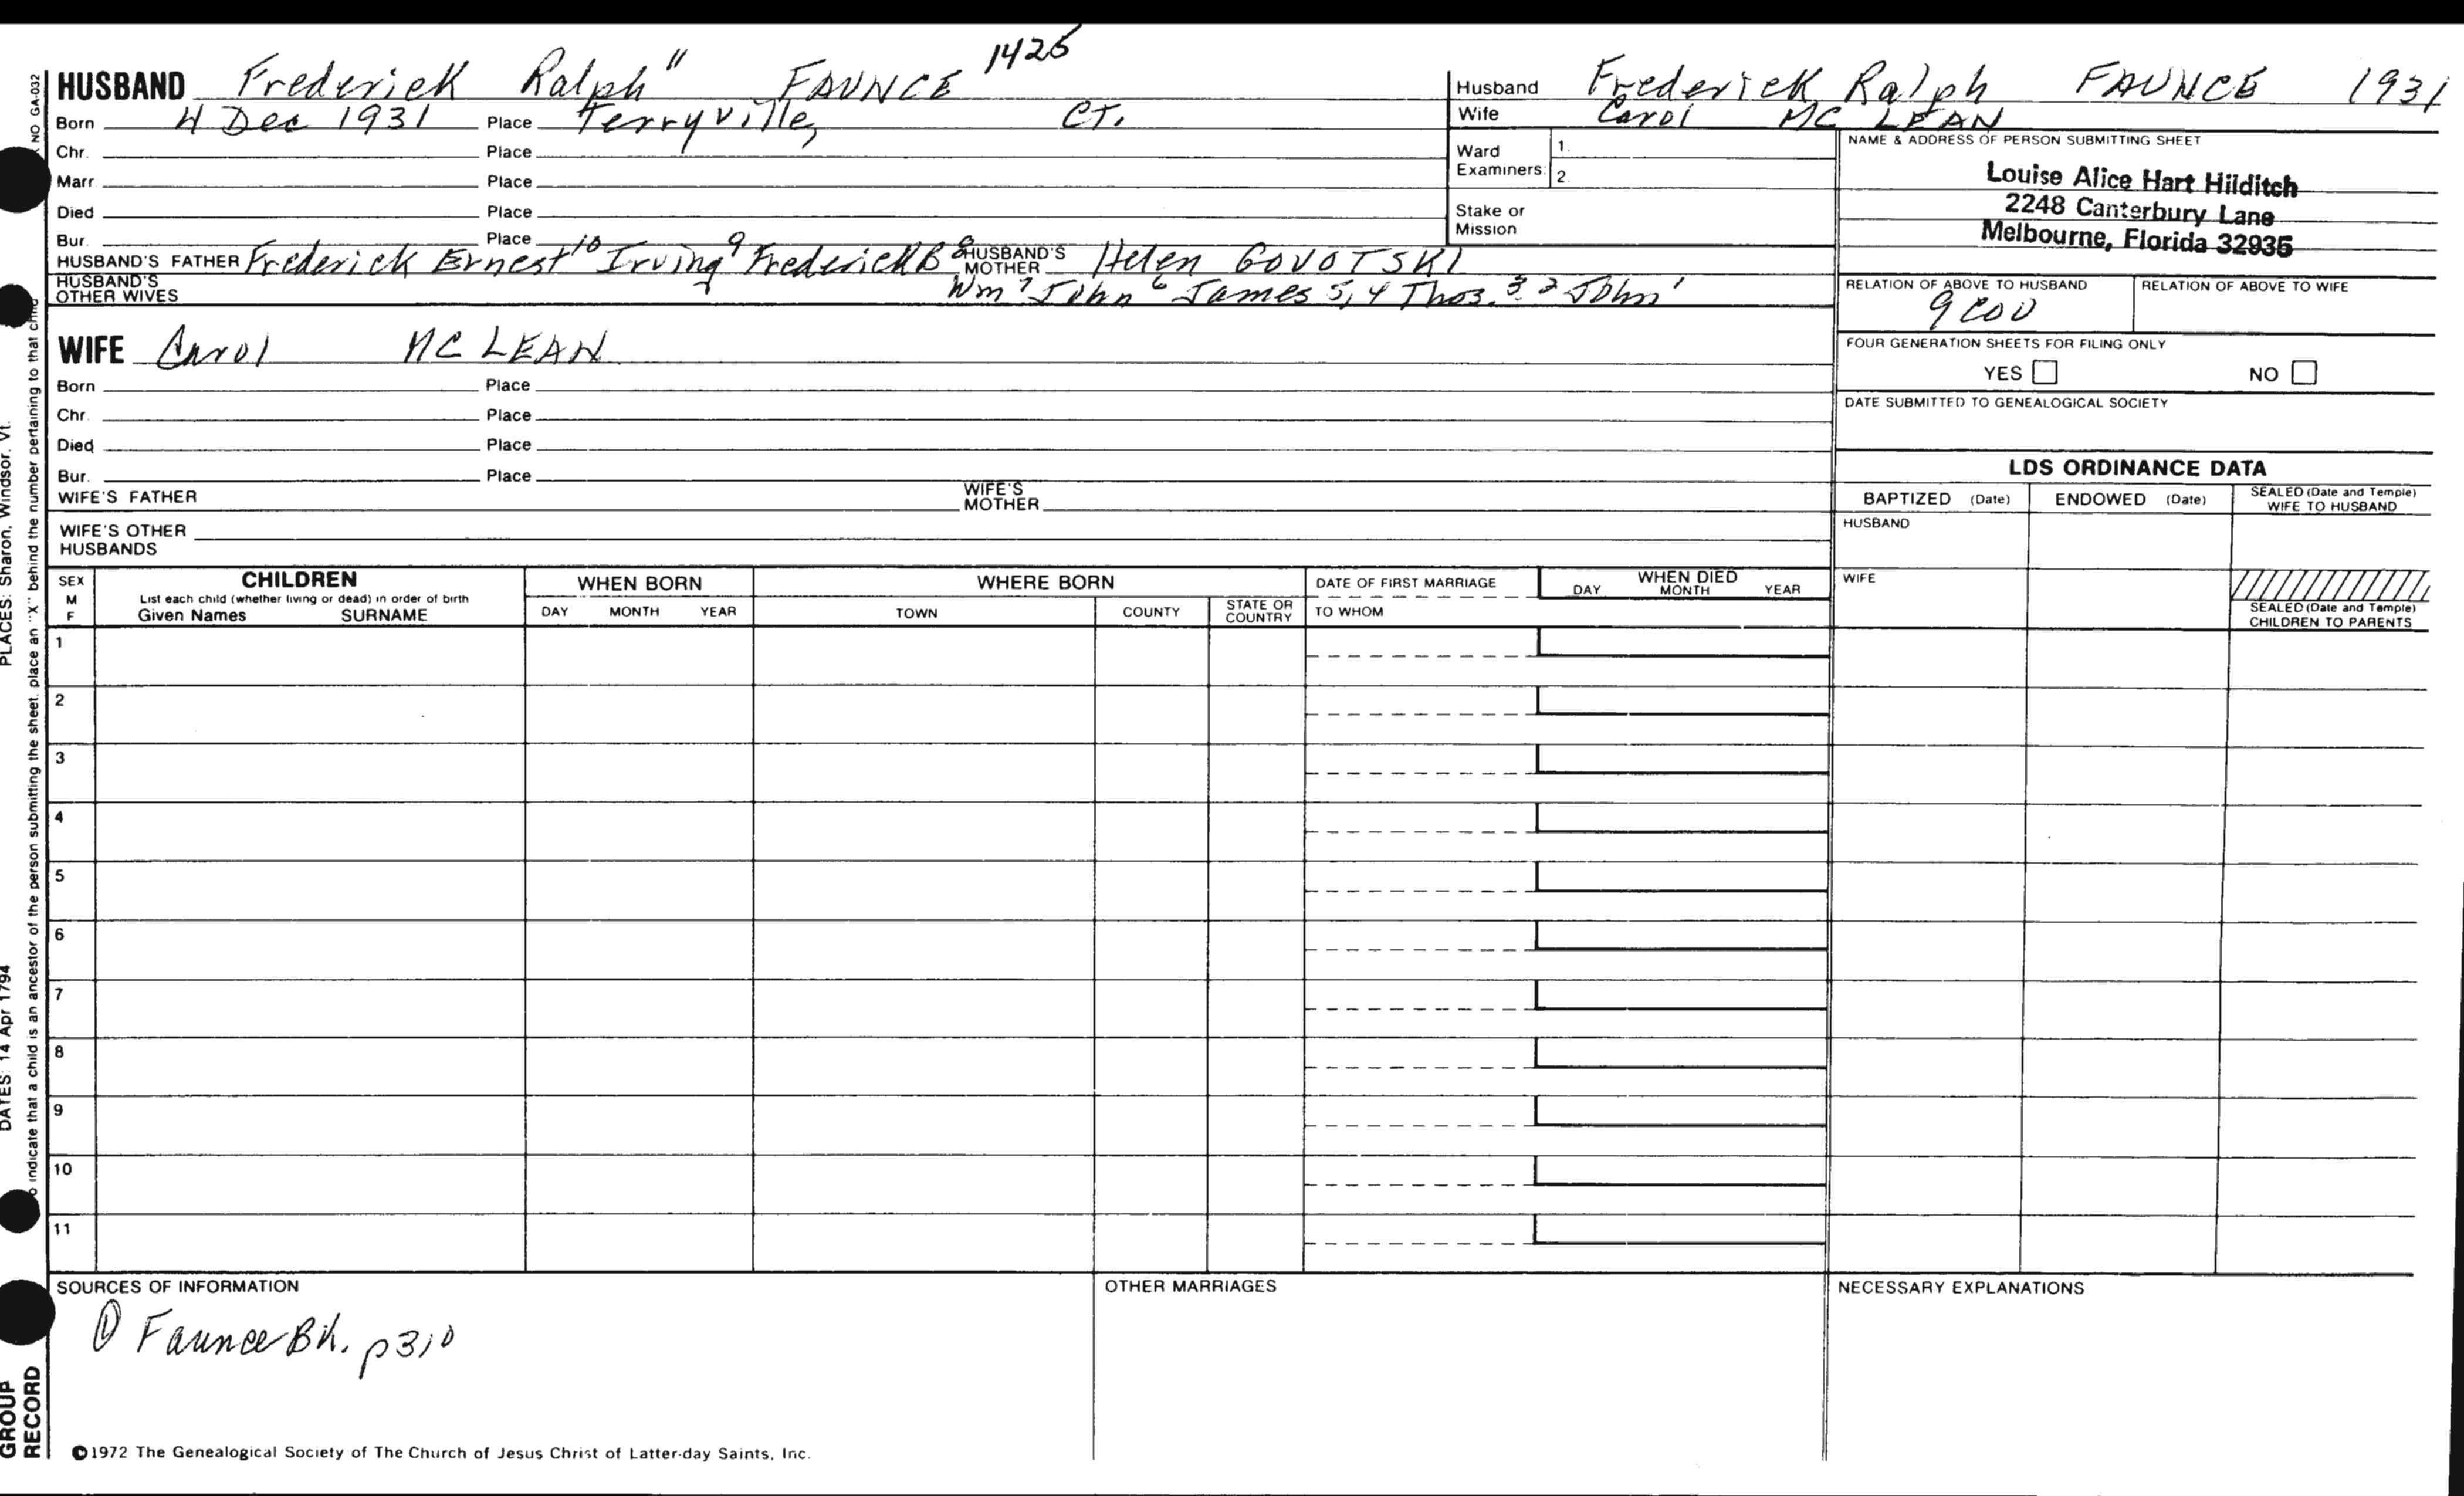 HUSBAND Frederick Ralph" FAUNCE 1426
Born 4 Dec 1931 Place Terryville, CT.
Chr. Place
Marr. Place
Died Place
Bur. Place
HUSBAND'S FATHER Frederick Ernest 10 Irving 9 Frederick B 8 HUSBAND'S MOTHER Helen GOVOTSKI
HUSBAND'S OTHER WIVES Wm 7 John 6 James 5,4 Thos. 3 2 John 1
WIFE Carol MC LEAN
Born Place
Chr. Place
Died Place
Bur. Place
WIFE'S FATHER WIFE'S MOTHER
WIFE'S OTHER HUSBANDS
Husband Frederick Ralph FAUNCE 1931
Wife Carol MC LEAN
Ward Examiners: 1.
2.
Stake or Mission
NAME & ADDRESS OF PERSON SUBMITTING SHEET
Louise Alice Hart Hilditch
2248 Canterbury Lane
Melbourne, Florida 32935
RELATION OF ABOVE TO HUSBAND RELATION OF ABOVE TO WIFE
9 COU
FOUR GENERATION SHEETS FOR FILING ONLY
YES NO
DATE SUBMITTED TO GENEALOGICAL SOCIETY
LDS ORDINANCE DATA
BAPTIZED (Date) ENDOWED (Date) SEALED (Date and Temple) WIFE TO HUSBAND
HUSBAND
WIFE
SEALED (Date and Temple) CHILDREN TO PARENTS
SEX M F
CHILDREN
List each child (whether living or dead) in order of birth
Given Names SURNAME
WHEN BORN
DAY MONTH YEAR
WHERE BORN
TOWN COUNTY STATE OR COUNTRY
DATE OF FIRST MARRIAGE
TO WHOM
WHEN DIED
DAY MONTH YEAR
1
2
3
4
5
6
7
8
9
10
11
SOURCES OF INFORMATION
① Faunce Bk. p310
OTHER MARRIAGES
NECESSARY EXPLANATIONS
©1972 The Genealogical Society of The Church of Jesus Christ of Latter-day Saints, Inc.
NO GA-032
indicate that a child is an ancestor of the person submitting the sheet, place an "X" behind the number pertaining to that child
DATES: 14 Apr 1794 PLACES: Sharon, Windsor, Vt.
GROUP
RECORD